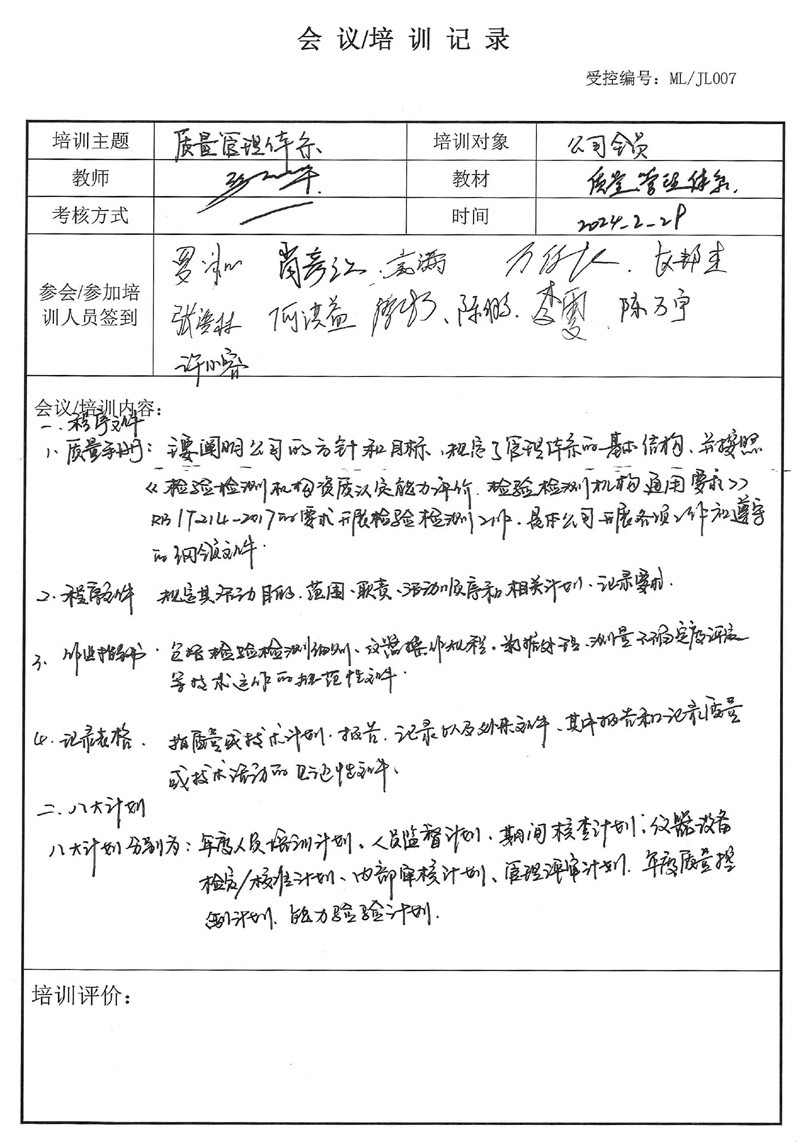 会 议/培 训 记 录
受控编号: ML/JL007
培训主题 质量管理体系 培训对象 公司全员
教师 教材 质量管理体系.
考核方式 时间 2024-2-29
参会/参加培训人员签到
高满
张 林 何洪益 陈鹏 李雯 陈万宇
许小容
会议/培训内容:
一. 程序文件
1、质量手册: 主要阐明公司的方针和目标、规定了管理体系的基本结构、并按照
《检验检测机构资质认定能力评价 检验检测机构通用要求》
RB/T214-2017的要求开展检验检测工作. 是本公司开展各项工作和遵守
的纲领文件.
2、程序文件 规定其活动目的、范围、职责、活动顺序和相关计划、记录要求.
3、作业指导书. 包括检验检测细则、仪器操作规程、数据处理、测量不确定度评定
等技术运作的规范性文件.
4、记录表格. 指质量或技术计划、报告、记录以及外来文件、其中报告和记录质量
或技术活动的见证性文件、
二、八大计划
八大计划分别为: 年度人员培训计划、人员监督计划、期间核查计划、仪器设备
检定/校准计划、内部审核计划、管理评审计划、年度质量控
制计划、能力验证计划.
培训评价: